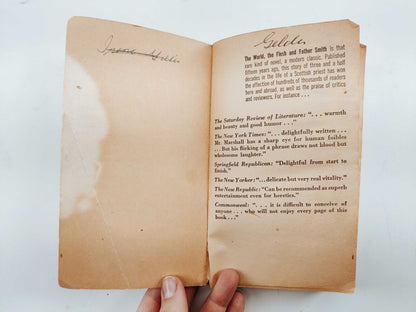 Irene
Gelder
The World, the Flesh and Father Smith is that
rare kind of novel, a modern classic. Published
fifteen years ago, this story of three and a half
decades in the life of a Scottish priest has won
the affection of hundreds of thousands of readers
here and abroad, as well as the praise of critics
and reviewers. For instance . . .
The Saturday Review of Literature: “. . . warmth
and beauty and good humor . . .”
The New York Times: “. . . delightfully written . . .
Mr. Marshall has a sharp eye for human foibles
. . . But his flicking of a phrase draws not blood but
wholesome laughter.”
Springfield Republican: “Delightful from start to
finish.”
The New Yorker: “. . . delicate but very real vitality.”
The New Republic: “Can be recommended as superb
entertainment even for heretics.”
Commonweal: “. . . it is difficult to conceive of
anyone . . . who will not enjoy every page of this
book . . .”